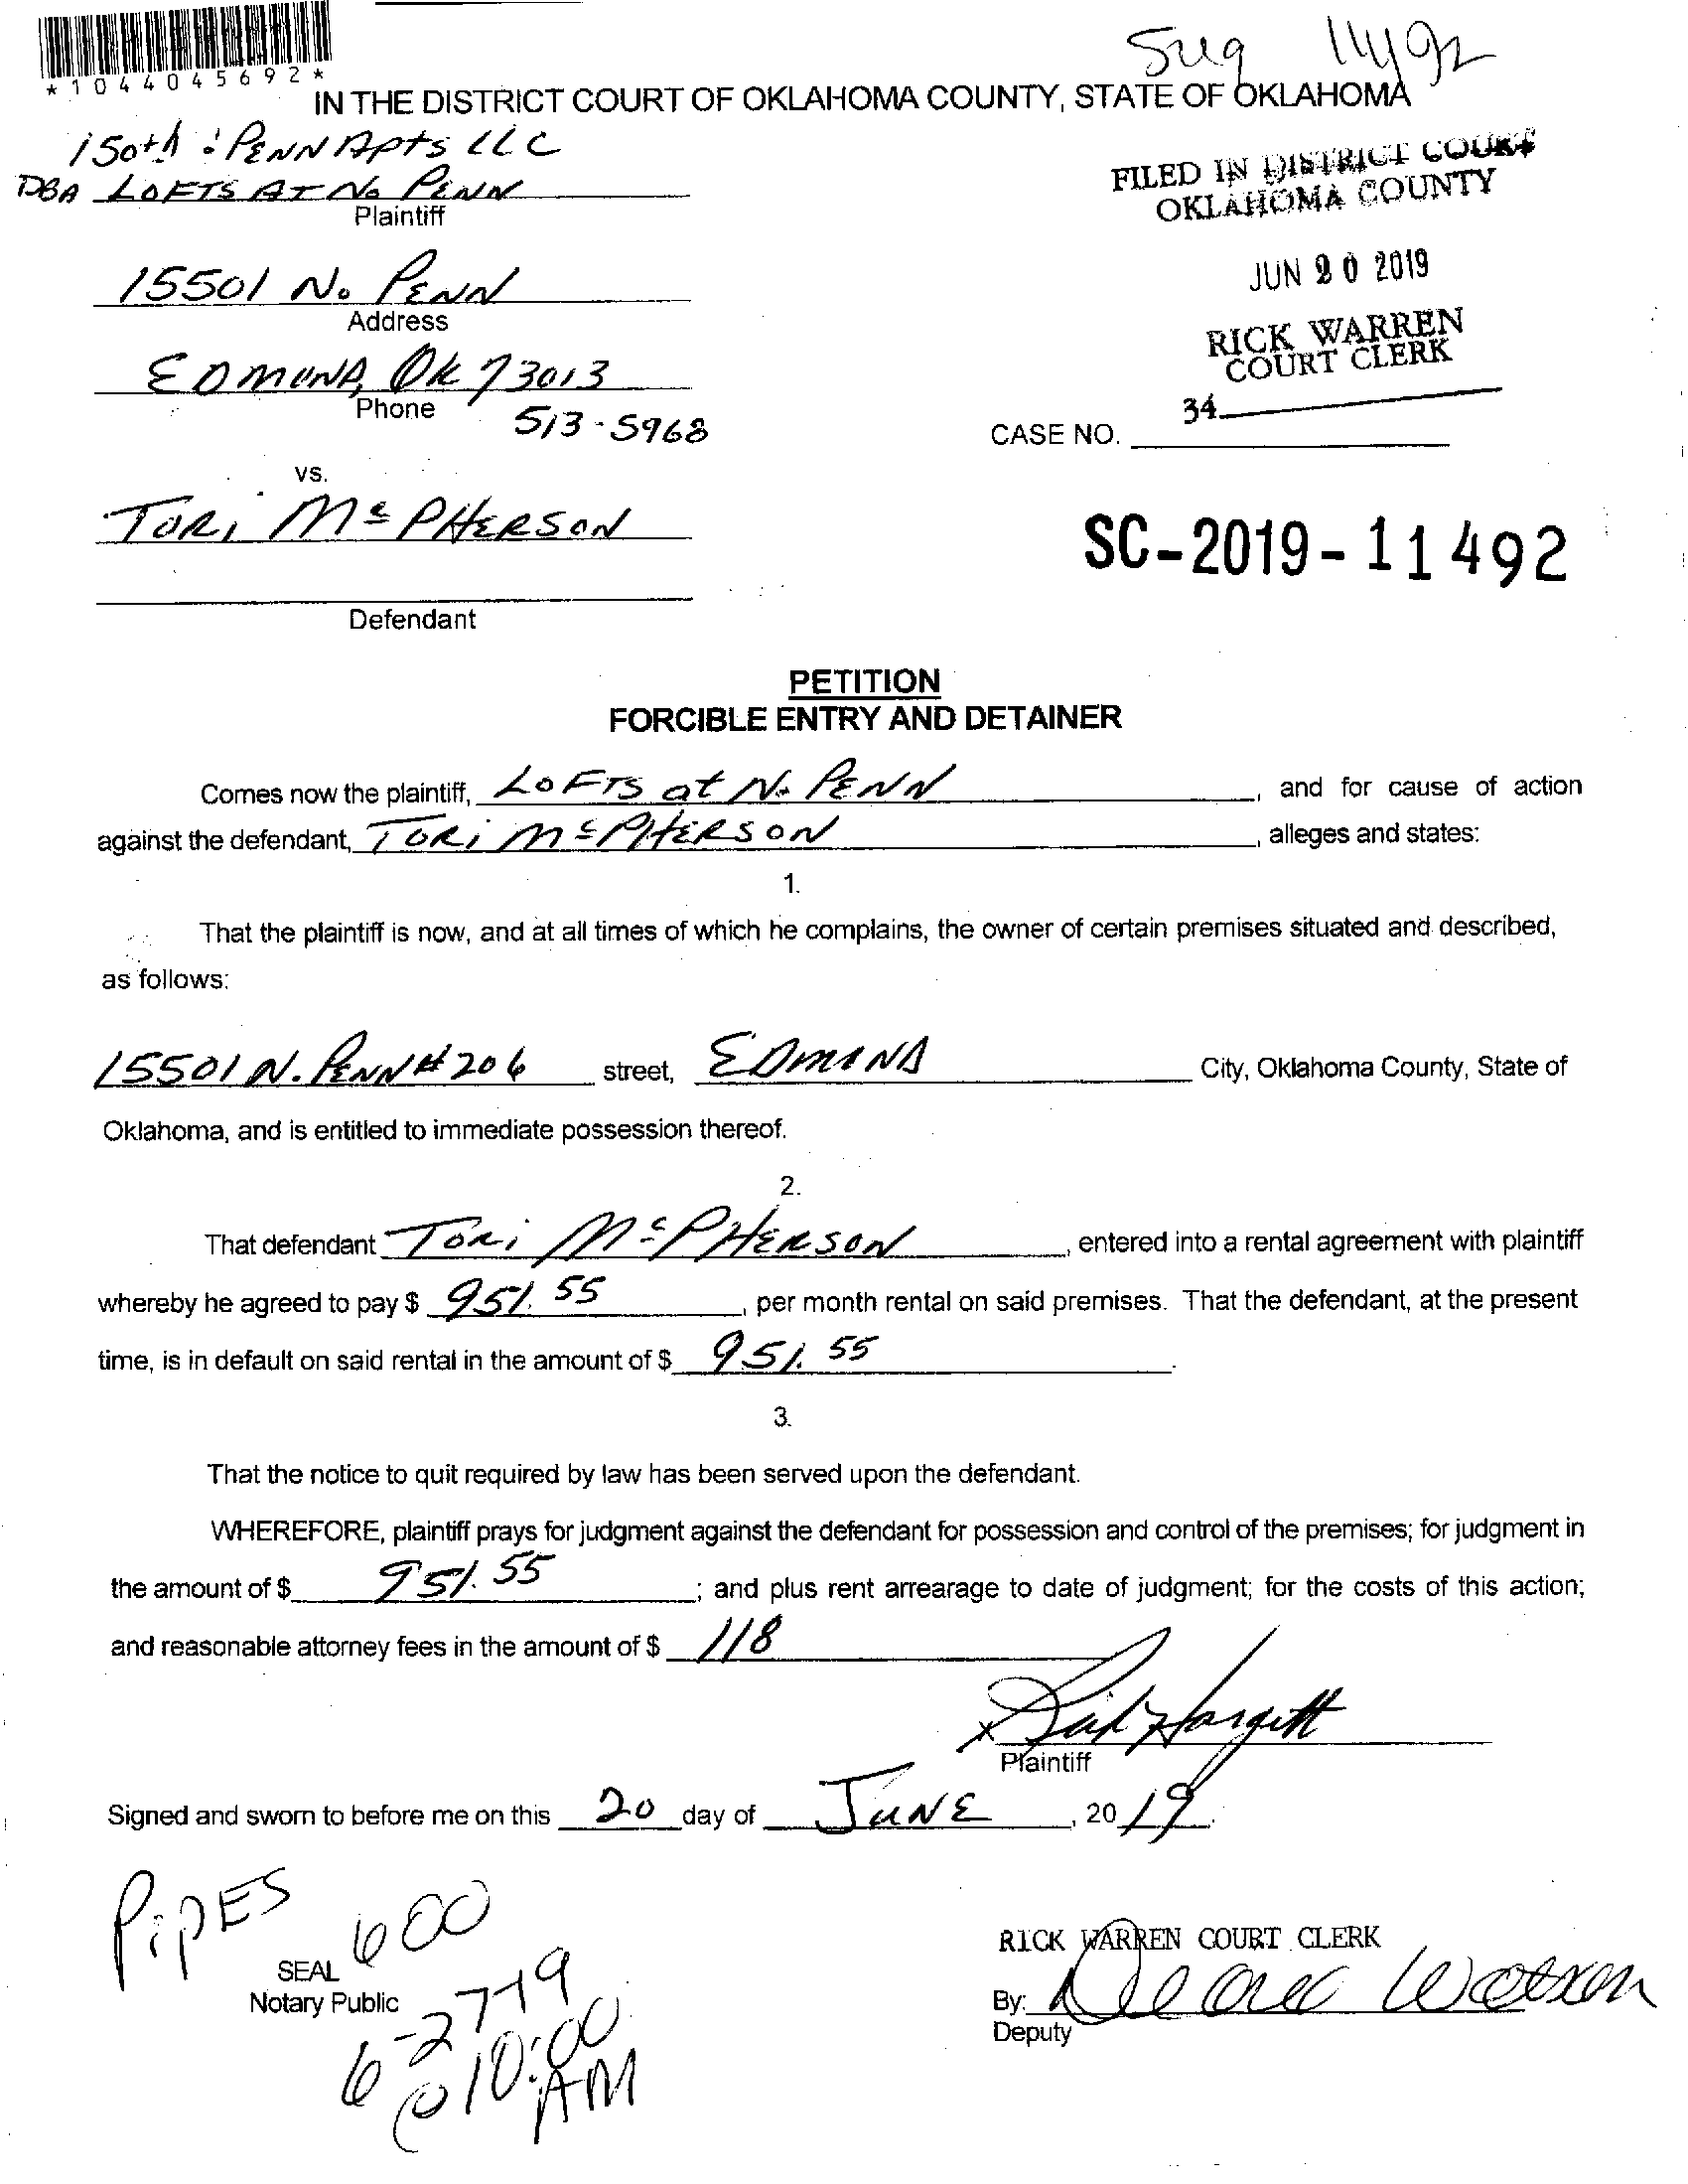 *1044045692*
11492
IN THE DISTRICT COURT OF OKLAHOMA COUNTY, STATE OF OKLAHOMA
150th : PENN APTS LLC
DBA LOFTS AT No PENN
Plaintiff
FILED IN DISTRICT COURT
OKLAHOMA COUNTY
JUN 20 2019
RICK WARREN
COURT CLERK
34
15501 No. PENN
Address
EDMOND, OK 73013
Phone
513-5968
CASE NO.
vs.
TORI McPHERSON
SC-2019-11492
Defendant
PETITION
FORCIBLE ENTRY AND DETAINER
Comes now the plaintiff, LOFTS at N. PENN, and for cause of action
against the defendant, TORI McPHERSON, alleges and states:
1.
That the plaintiff is now, and at all times of which he complains, the owner of certain premises situated and described,
as follows:
15501 N. PENN # 206 street, EDMOND City, Oklahoma County, State of
Oklahoma, and is entitled to immediate possession thereof.
2.
That defendant TORI McPHERSON, entered into a rental agreement with plaintiff
whereby he agreed to pay $ 951.55, per month rental on said premises. That the defendant, at the present
time, is in default on said rental in the amount of $ 951.55.
3.
That the notice to quit required by law has been served upon the defendant.
WHEREFORE, plaintiff prays for judgment against the defendant for possession and control of the premises; for judgment in
the amount of $ 951.55; and plus rent arrearage to date of judgment; for the costs of this action;
and reasonable attorney fees in the amount of $ 118
x
Plaintiff
Signed and sworn to before me on this 20 day of JUNE, 2019.
PIPES
600
SEAL
Notary Public
6-27-19
@ 10:00
AM
RICK WARREN COURT CLERK
By: Watson
Deputy